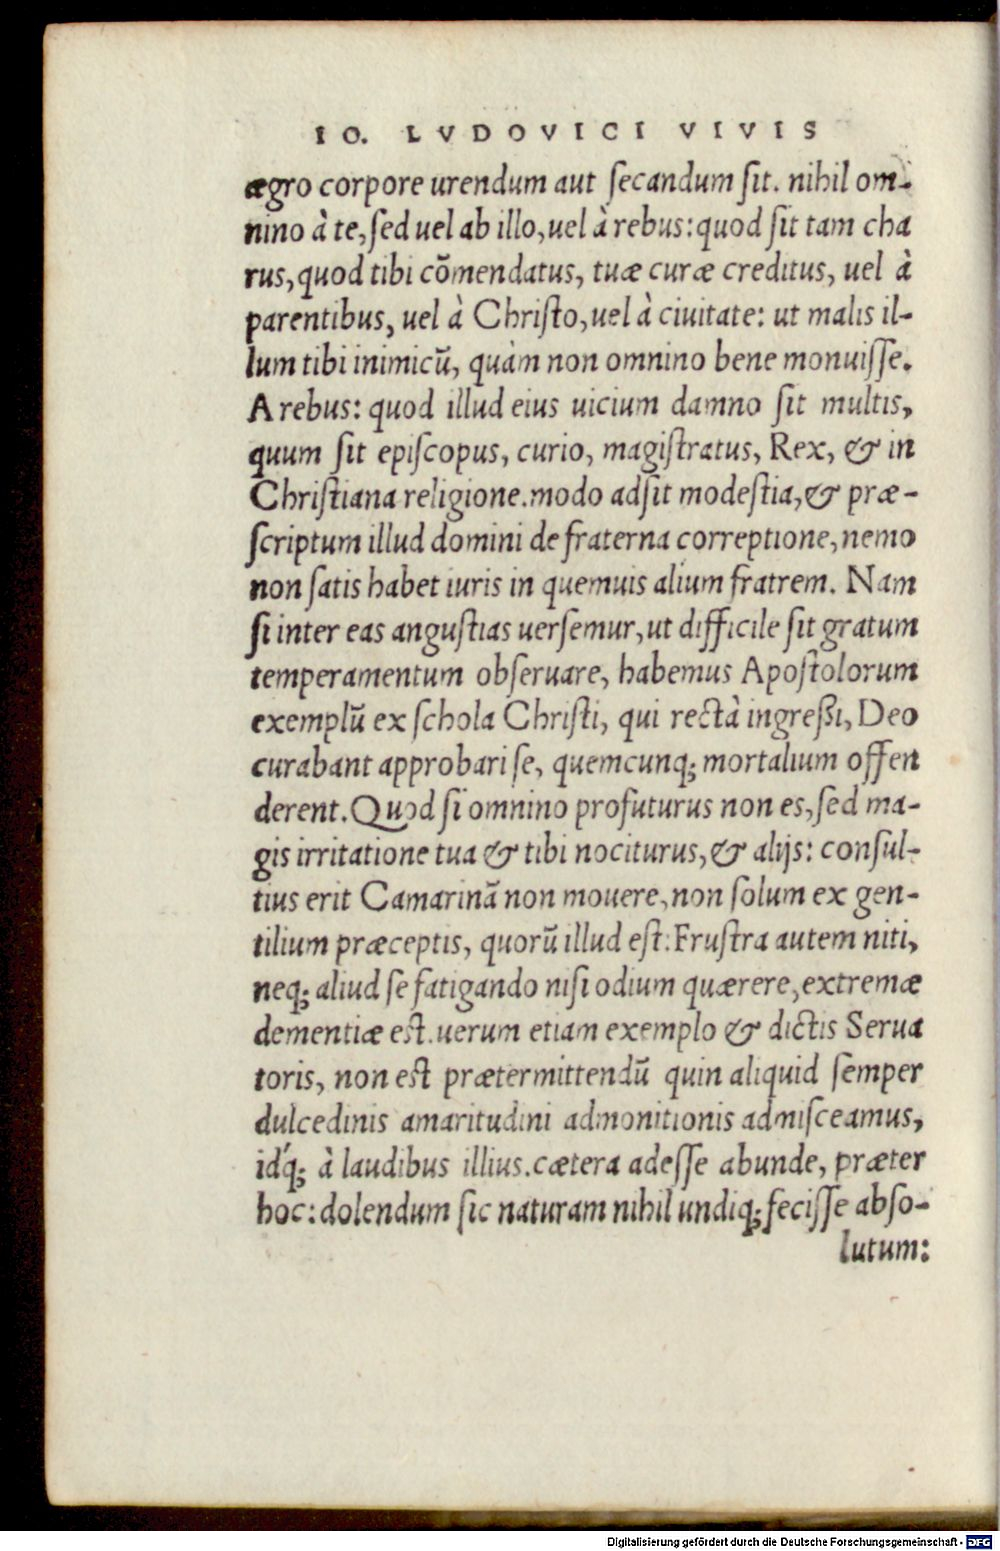 IO. LVDOVICI VIVIS
ægro corpore urendum aut ſecandum ſit. nihil om-
nino à te, ſed uel ab illo, uel à rebus: quod ſit tam cha
rus, quod tibi cõmendatus, tuæ curæ creditus, uel à
parentibus, uel à Chriſto, uel à ciuitate: ut malis il-
lum tibi inimicũ, quàm non omnino bene monuiſſe.
A rebus: quod illud eius uicium damno ſit multis,
quum ſit epiſcopus, curio, magiſtratus, Rex, & in
Chriſtiana religione. modo adſit modeſtia, & præ-
ſcriptum illud domini de fraterna correptione, nemo
non ſatis habet iuris in quemuis alium fratrem. Nam
ſi inter eas anguſtias uerſemur, ut difficile ſit gratum
temperamentum obſeruare, habemus Apoſtolorum
exemplũ ex ſchola Chriſti, qui rectà ingreßi, Deo
curabant approbari ſe, quemcunq; mortalium offen
derent. Quod ſi omnino profuturus non es, ſed ma-
gis irritatione tua & tibi nociturus, & alijs: conſul-
tius erit Camarinã non mouere, non ſolum ex gen-
tilium præceptis, quorũ illud eſt: Fruſtra autem niti,
neq; aliud ſe fatigando niſi odium quærere, extremæ
dementiæ eſt. uerum etiam exemplo & dictis Serua
toris, non eſt prætermittendũ quin aliquid ſemper
dulcedinis amaritudini admonitionis admiſceamus,
idq́; à laudibus illius. cætera adeſſe abunde, præter
hoc: dolendum ſic naturam nihil undiq; feciſſe abſo-
lutum:
Digitalisierung gefördert durch die Deutsche Forschungsgemeinschaft - DFG